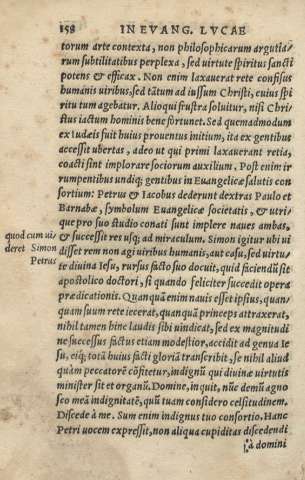 158 IN EVANG. LVCAE
torum arte contexta, non philosophicarum argutia/
rum subtilitatibus perplexa, sed uirtute spiritus sancti
potens & efficax. Non enim laxauerat rete confisus
humanis uiribus, sed tātum ad iussum Christi, cuius spi
ritu tum agebatur. Alioqui frustra soluitur, nisi Chri/
stus iactum hominis bene fortunet. Sed quemadmodum
ex Iudæis fuit huius prouentus initium, ita ex gentibus
accessit ubertas, adeo ut qui primi laxauerant retia,
coacti sint implorare sociorum auxilium. Post enim ir
rumpentibus undiq; gentibus in Euangelicæ salutis con
sortium: Petrus & Iacobus dederunt dextras Paulo et
Barnabæ, symbolum Euangelicæ societatis, & utri/
que pro suo studio conati sunt implere naues ambas,
& successit res usq; ad miraculum. Simon igitur ubi ui
disset rem non agi uiribus humanis, aut casu, sed uirtu/
te diuina Iesu, rursus facto suo docuit, quid faciendū sit
apostolico doctori, si quando feliciter succedit opera
prædicationis. Quanquā enim nauis esset ipsius, quan/
quam suum rete iecerat, quanquā princeps attraxerat,
nihil tamen hinc laudis sibi uindicat, sed ex magnitudi
ne successus factus etiam modestior, accidit ad genua Ie
su, eiq; totā huius facti gloriā transcribit, se nihil aliud
quàm peccatorē cōfitetur, indignū qui diuinæ uirtutis
minister sit et organū. Domine, inquit, nūc demū agno
sco meā indignitatē, quū tuam considero celsitudinem.
Discede à me. Sum enim indignus tuo consortio. Hanc
Petri uocem expressit, non aliqua cupiditas discedendi
à domini
quod cum ui/
deret Simon
Petrus